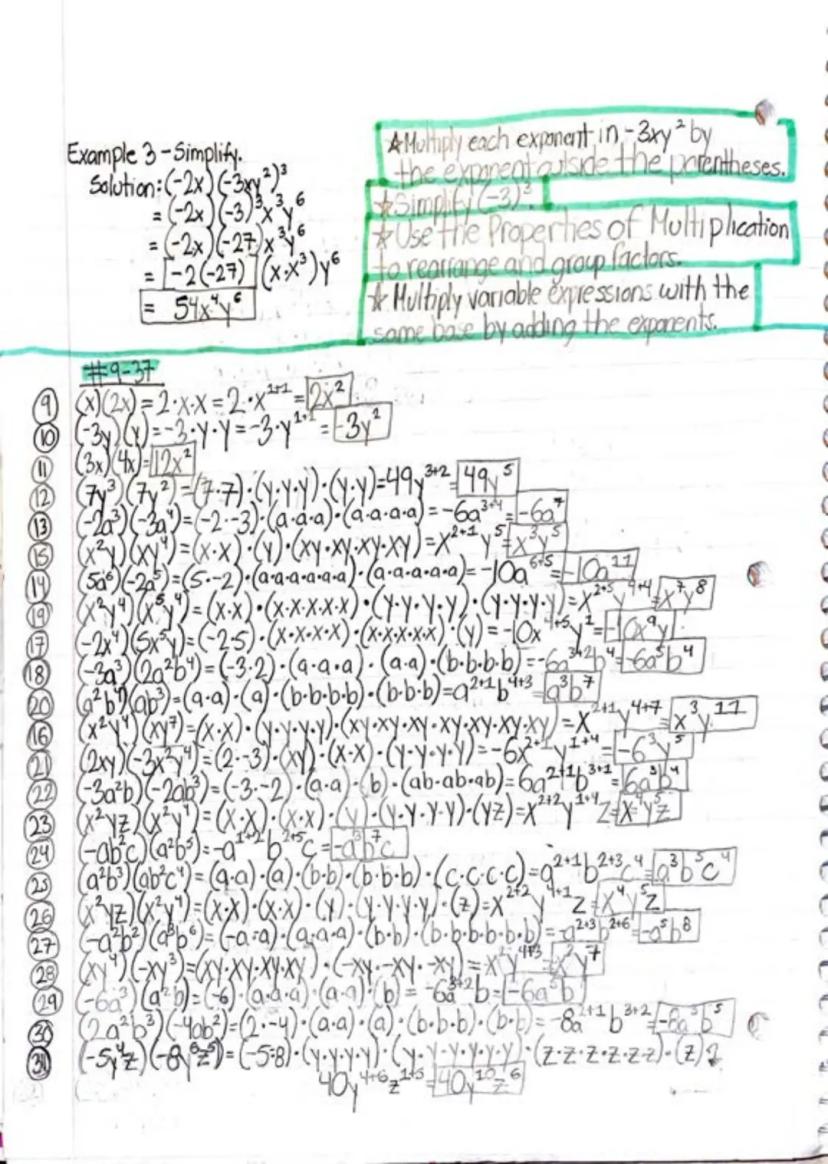 Example 3 - Simplify.
Solution: (-2x)(-3xy²)³
= (-2x)(-3)³x³y⁶
= (-2x)(-27)x³y⁶
= [-2(-27)](x·x³)y⁶
= 54x⁴y⁶
☆Multiply each exponent in -3xy² by
the exponent outside the parentheses.
☆Simplify (-3)³.
☆Use the Properties of Multiplication
to rearrange and group factors.
☆Multiply variable expressions with the
same base by adding the exponents.
#9-37
9 (x)(2x)=2·x·x=2·x¹⁺¹=2x²
10 (-3y)(y)=-3·y·y=-3·y¹⁺¹=-3y²
11 (3x)(4x)=12x²
12 (7y³)(7y²)=(7·7)·(y·y·y)·(y·y)=49y³⁺²=49y⁵
13 (-2a³)(-3a⁴)=(-2·-3)·(a·a·a)·(a·a·a·a)=-6a³⁺⁴=-6a⁷
15 (x²y)(xy⁴)=(x·x)·(y)·(xy·xy·xy·xy)=x²⁺¹y⁵=x³y⁵
14 (5a⁶)(-2a⁵)=(5·-2)·(a·a·a·a·a·a)·(a·a·a·a·a)=-10a⁶⁺⁵=-10a¹¹
19 (x²y⁴)(x⁵y⁴)=(x·x)·(x·x·x·x·x)·(y·y·y·y)·(y·y·y·y)=x²⁺⁵y⁴⁺⁴=x⁷y⁸
17 (-2x⁴)(5x⁵y)=(-2·5)·(x·x·x·x)·(x·x·x·x·x)·(y)=-10x⁴⁺⁵y¹=-10x⁹y
18 (-3a³)(2a²b⁴)=(-3·2)·(a·a·a)·(a·a)·(b·b·b·b)=-6a³⁺²b⁴=-6a⁵b⁴
20 (a²b⁴)(ab³)=(a·a)·(a)·(b·b·b·b)·(b·b·b)=a²⁺¹b⁴⁺³=a³b⁷
16 (x²y⁴)(xy⁷)=(x·x)·(y·y·y·y)·(xy·xy·xy·xy·xy·xy·xy)=x²⁺¹y⁴⁺⁷=x³y¹¹
21 (2xy)(-3x²y⁴)=(2·-3)·(xy)·(x·x)·(y·y·y·y)=-6x²⁺¹y¹⁺⁴=-6³y⁵
22 (-3a²b)(-2ab³)=(-3·-2)·(a·a)·(b)·(ab·ab·ab)=6a²⁺¹b³⁺¹=6a³b⁴
23 (x²yz)(x²y⁴)=(x·x)·(x·x)·(y)·(y·y·y·y)·(yz)=x²⁺²y¹⁺⁴z=x⁴y⁵z
24 (-ab²c)(a²b⁵)=-a¹⁺²b²⁺⁵c=-a³b⁷c
25 (a²b³)(ab²c⁴)=(a·a)·(a)·(b·b)·(b·b·b)·(c·c·c·c)=a²⁺¹b²⁺³c⁴=a³b⁵c⁴
26 (x²yz)(x²y⁴)=(x·x)·(x·x)·(y)·(y·y·y·y)·(z)=x²⁺²y⁴⁺¹z=x⁴y⁵z
27 (-a²b²)(a³b⁶)=(-a·a)·(a·a·a)·(b·b)·(b·b·b·b·b·b)=-a²⁺³b²⁺⁶=-a⁵b⁸
28 (xy⁴)(-xy³)=(xy·xy·xy·xy)·(-xy·-xy·-xy)=x²y⁴⁺³=x²y⁷
29 (-6a³)(a²b)=(-6)·(a·a·a)·(a·a)·(b)=-6a³⁺²b=-6a⁵b
30 (2a²b³)(-4ab²)=(2·-4)·(a·a)·(a)·(b·b·b)·(b·b)=-8a²⁺¹b³⁺²=-8a³b⁵
31 (-5y⁴z)(-8y⁶z⁵)=(-5·8)·(y·y·y·y)·(y·y·y·y·y·y)·(z·z·z·z·z·z)·(z)=
40y⁴⁺⁶z¹⁺⁵=40y¹⁰z⁶